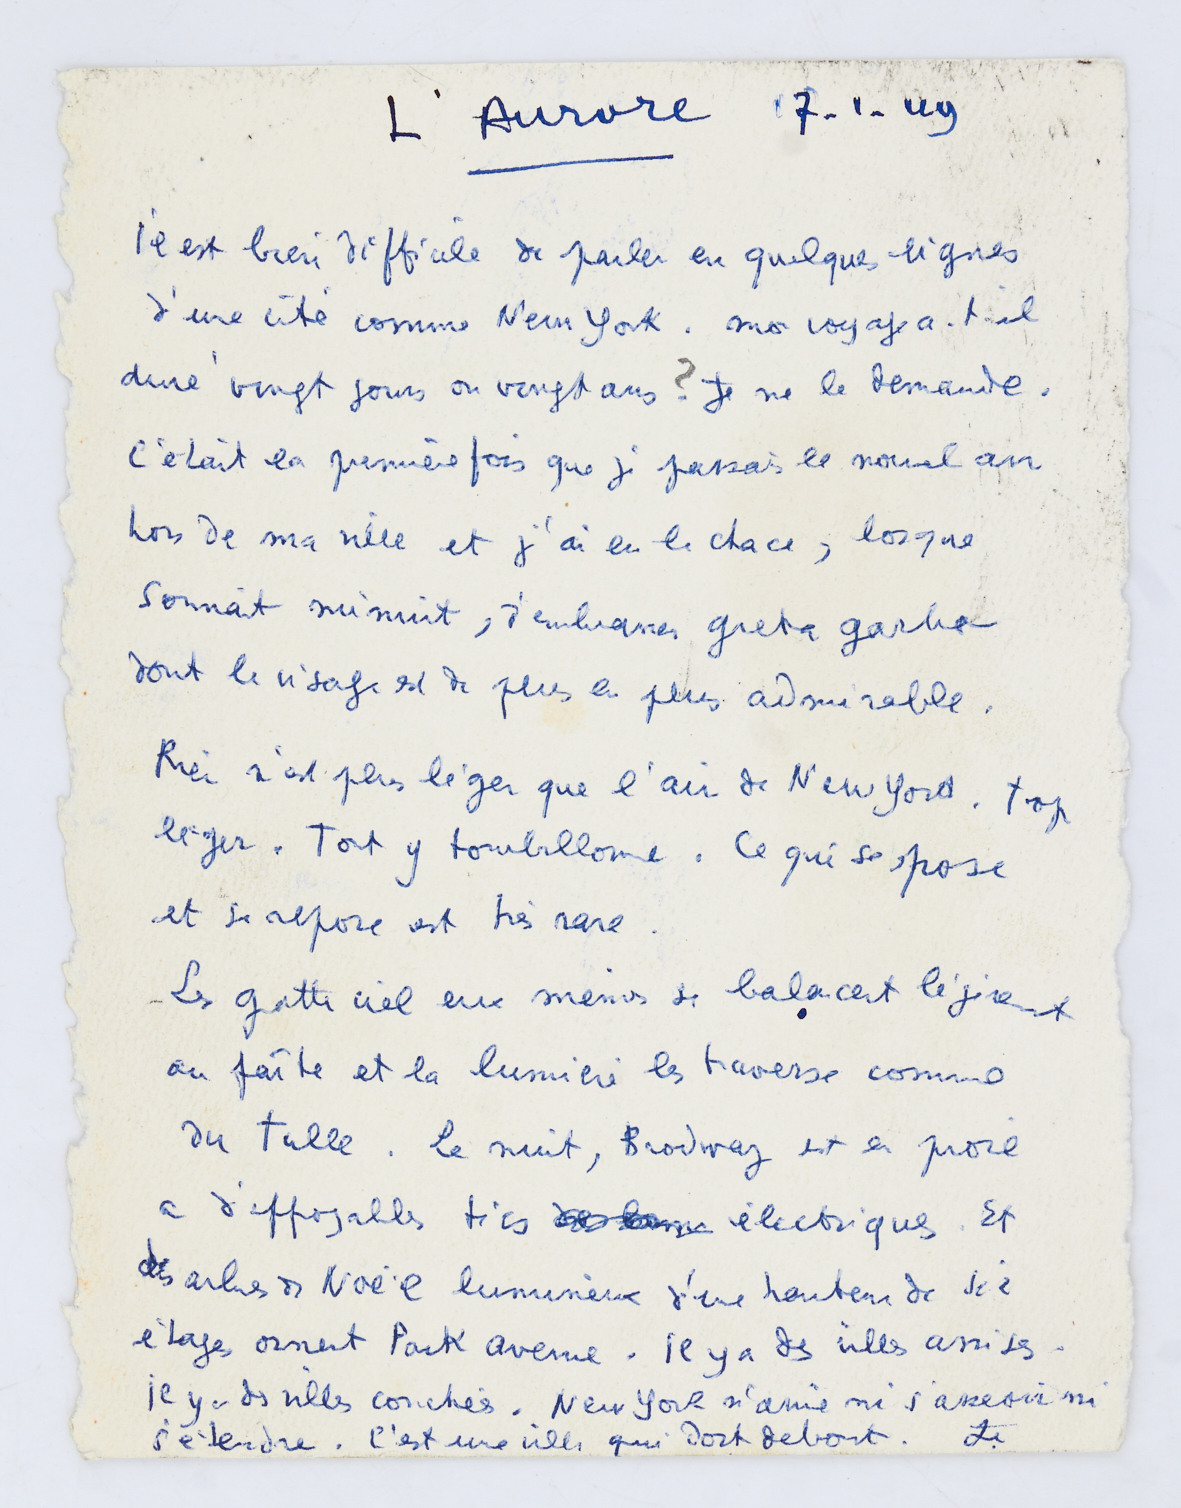 L'Aurore 17-1-49
il est bien difficile de parler en quelques lignes
d'une cité comme New York. mon voyage a-t-il
duré vingt jours ou vingt ans ? Je me le demande.
C'était la première fois que je passais le nouvel an
hors de ma ville et j'ai eu la chance, lorsque
sonnait minuit, d'embrasser greta garbo
dont le visage est de plus en plus admirable.
Rien n'est plus léger que l'air de New York. trop
léger. Tout y tourbillonne. Ce qui se pose
et se repose est très rare.
Les gratte ciel eux mêmes se balancent légèrement
au faîte et la lumière les traverse comme
du tulle. La nuit, Brodway est en proie
a d'effroyables tics électriques. Et
des arbres de Noël lumineux d'une hauteur de six
étages ornent Park Avenue. il y a des villes assises.
il y a des villes couchées. New York n'aime ni s'asseoir ni
s'étendre. C'est une ville qui dort debout. Je